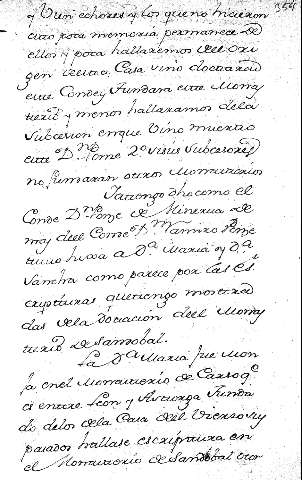 y bien echores y los que no hicieron
esto poca memoria permanece de
ellos y poca hallaremos del ori
gen de esta Casa vino do
este Conde y fundara este Mona
sterio y menos hallaramos de la
subcesion en que vino muerto
este D.n Pome 2º si sus subcesores
no fundaran otros Monasterios
Ya tengo dho como el
Conde D.n Ponze de Minerva de
mas del Conde D.n Ramiro Ponze
tuvo hixa a D.ª Maria y D.ª
Sancha como parece por las Es
crypturas que tengo mostra
das de la Dotacion del Mona
sterio de Sandobal.
La D.ª Maria fue Mon
ja en el Monasterio de Carso q.e
es entre Leon y Astorga funda
do de los de la Casa del Vierso y
pasados hallase escriptura en
el Monasterio de Sandobal otor